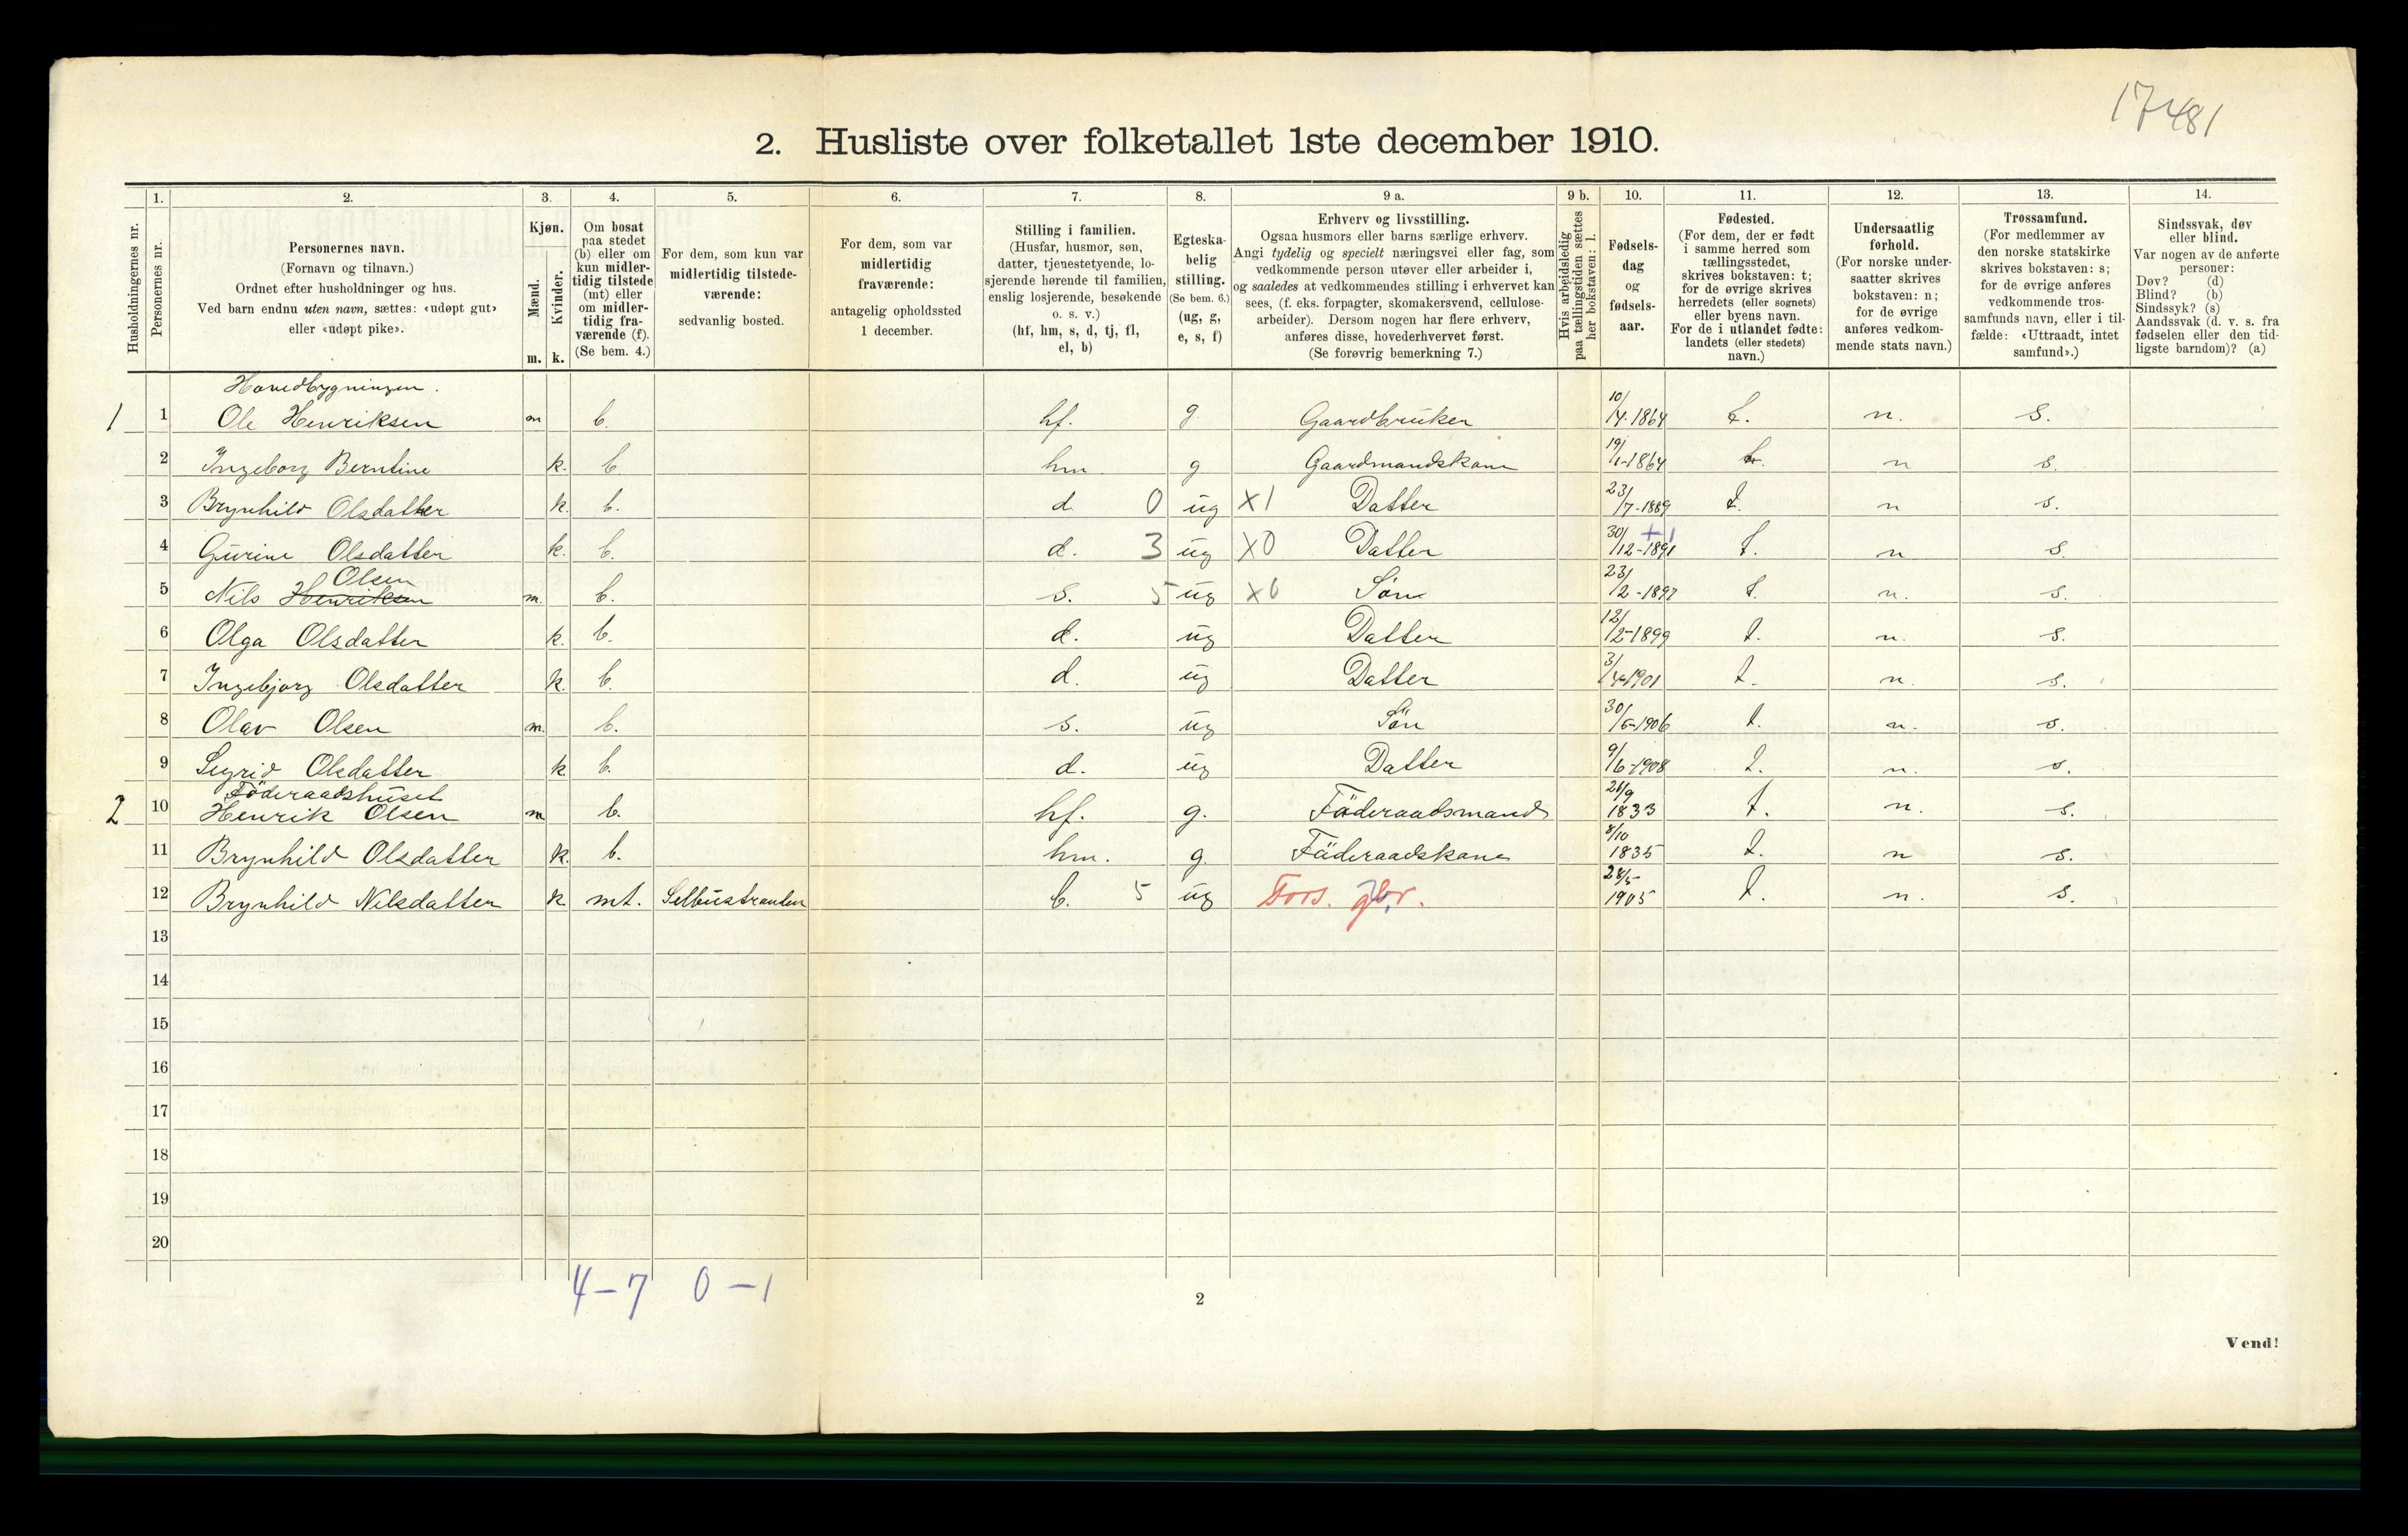 17481
2. Husliste over folketallet 1ste december 1910.
Husholdningernes nr.
1. Personernes nr.
2. Personernes navn.
(Fornavn og tilnavn.)
Ordnet efter husholdninger og hus.
Ved barn endnu uten navn, sættes: «udøpt gut»
eller «udøpt pike».
3. Kjøn.
Mænd. m.
Kvinder. k.
4. Om bosat
paa stedet
(b) eller om
kun midler-
tidig tilstede
(mt) eller
om midler-
tidig fra-
værende (f).
(Se bem. 4.)
5. For dem, som kun var
midlertidig tilstede-
værende:
sedvanlig bosted.
6. For dem, som var
midlertidig
fraværende:
antagelig opholdssted
1 december.
7. Stilling i familien.
(Husfar, husmor, søn,
datter, tjenestetyende, lo-
sjerende hørende til familien,
enslig losjerende, besøkende
o. s. v.)
(hf, hm, s, d, tj, fl,
el, b)
8. Egteska-
belig
stilling.
(Se bem. 6.)
(ug, g,
e, s, f)
9 a. Erhverv og livsstilling.
Ogsaa husmors eller barns særlige erhverv.
Angi tydelig og specielt næringsvei eller fag, som
vedkommende person utøver eller arbeider i,
og saaledes at vedkommendes stilling i erhvervet kan
sees, (f. eks. forpagter, skomakersvend, cellulose-
arbeider). Dersom nogen har flere erhverv,
anføres disse, hovederhvervet først.
(Se forøvrig bemerkning 7.)
9 b. Hvis arbeidsledig
paa tællingstiden sættes
her bokstaven: l.
10. Fødsels-
dag
og
fødsels-
aar.
11. Fødested.
(For dem, der er født
i samme herred som
tællingsstedet,
skrives bokstaven: t;
for de øvrige skrives
herredets (eller sognets)
eller byens navn.
For de i utlandet fødte:
landets (eller stedets)
navn.)
12. Undersaatlig
forhold.
(For norske under-
saatter skrives
bokstaven: n;
for de øvrige
anføres vedkom-
mende stats navn.)
13. Trossamfund.
(For medlemmer av
den norske statskirke
skrives bokstaven: s;
for de øvrige anføres
vedkommende tros-
samfunds navn, eller i til-
fælde: «Uttraadt, intet
samfund».)
14. Sindssvak, døv
eller blind.
Var nogen av de anførte
personer:
Døv? (d)
Blind? (b)
Sindssyk? (s)
Aandssvak (d. v. s. fra
fødselen eller den tid-
ligste barndom)? (a)
Hovedbygningen.
1 1 Ole Henriksen m b. hf. g Gaardbruker 10/4-1864 t. n. s.
2 Ingeborg Berntine k. b hm. g Gaardmandskone 19/1-1864 t. n s.
3 Brynhild Olsdatter k. b. d. 0 ug x1 Datter 23/7-1889 t. n s.
4 Gurine Olsdatter k. b. d. 3 ug x0 Datter 30/12-1891 +1 t. n s.
5 Nils Henriksen Olsen m. b. s. 5 ug x0 Søn 23/2-1897 t. n. s.
6 Olga Olsdatter k. b. d. ug Datter 12/2-1899 t. n. s.
7 Ingebjørg Olsdatter k. b. d. ug Datter 3/4-1901 t. n. s.
8 Olav Olsen m. b. s. ug Søn 30/6-1906 t. n. s.
9 Sigrid Olsdatter k b. d. ug Datter 9/6-1908 t. n. s.
Föderaadshuset
2 10 Henrik Olsen m b. hf. g. Föderaadsmand 21/9 1833 t. n. s.
11 Brynhild Olsdatter k. b. hm. g. Föderaadskone 8/10 1835 t. n s.
12 Brynhild Nilsdatter k mt. Selbustranden b. 5 ug Fors. gbr. 28/5- 1905 t. n. s.
13
14
15
16
17
18
19
20
4-7 0-1
2
Vend!